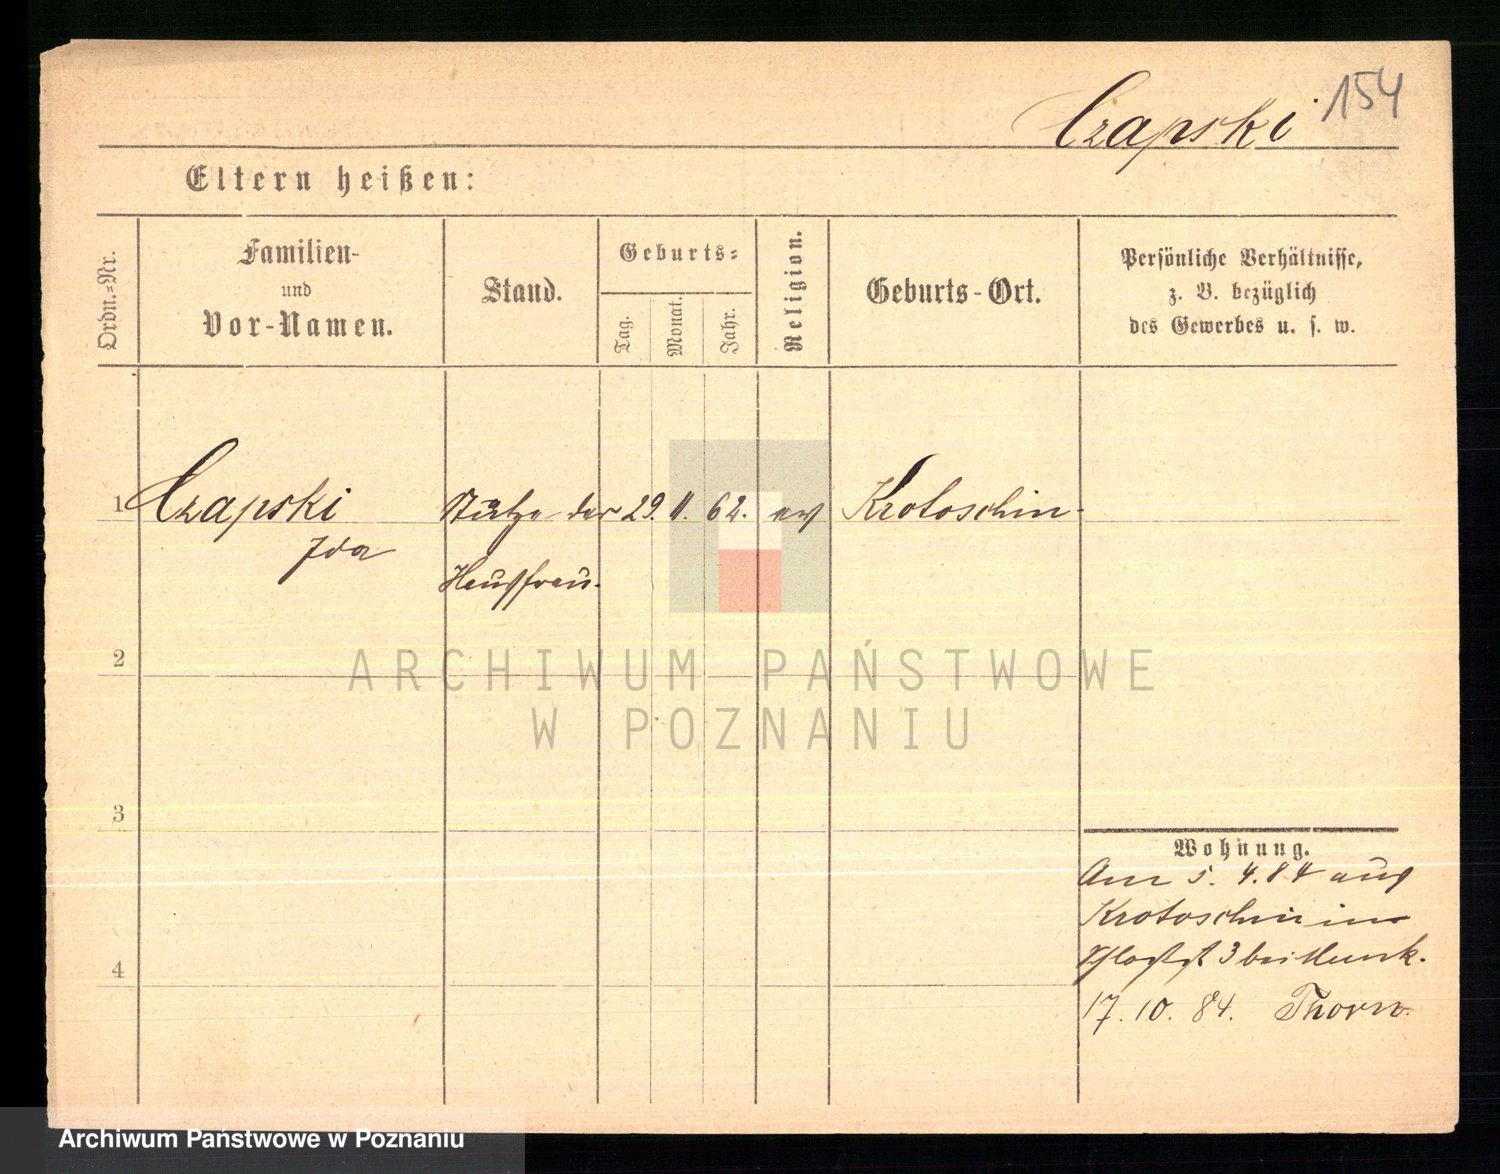 Czapski 154
Eltern heißen:
Ordn.-Nr.
Familien-
und
Vor-Namen.
Stand.
Geburts-
Tag.
Monat.
Jahr.
Religion.
Geburts-Ort.
Persönliche Verhältnisse,
z. B. bezüglich
des Gewerbes u. s. w.
1 Czapski Stütze der 29. 11. 62. ev Krotoschin
Ida
Hausfrau.
2
3
4
Wohnung.
Am 5. 4. 84 aus
Krotoschin in
3 bei Munk.
17. 10. 84. Thorn.
ARCHIWUM PAŃSTWOWE
W POZNANIU
Archiwum Państwowe w Poznaniu